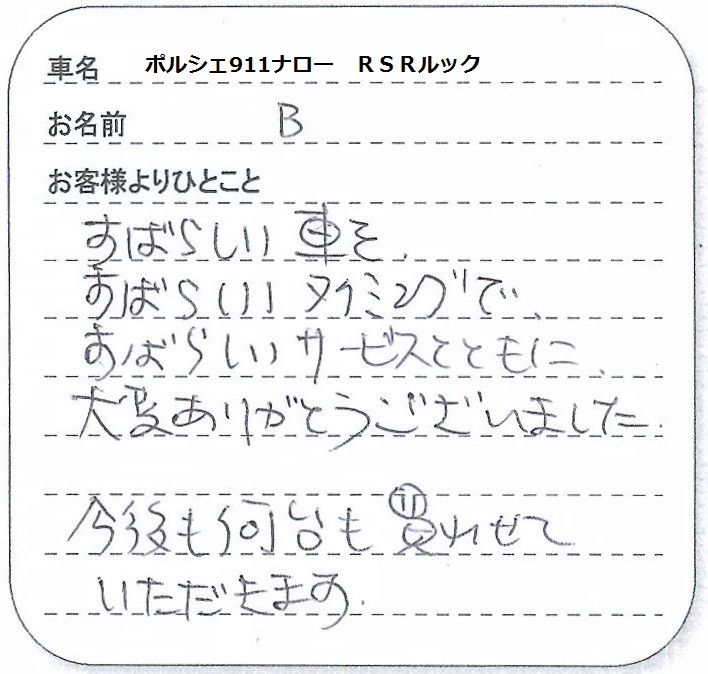 車名 ポルシェ911ナロー　ＲＳＲルック
お名前 B
お客様よりひとこと
すばらしい 車を、
すばらしい タイミングで、
すばらしい サービスとともに、
大変ありがとうございました.
今後も何台も買わせて
いただきます.